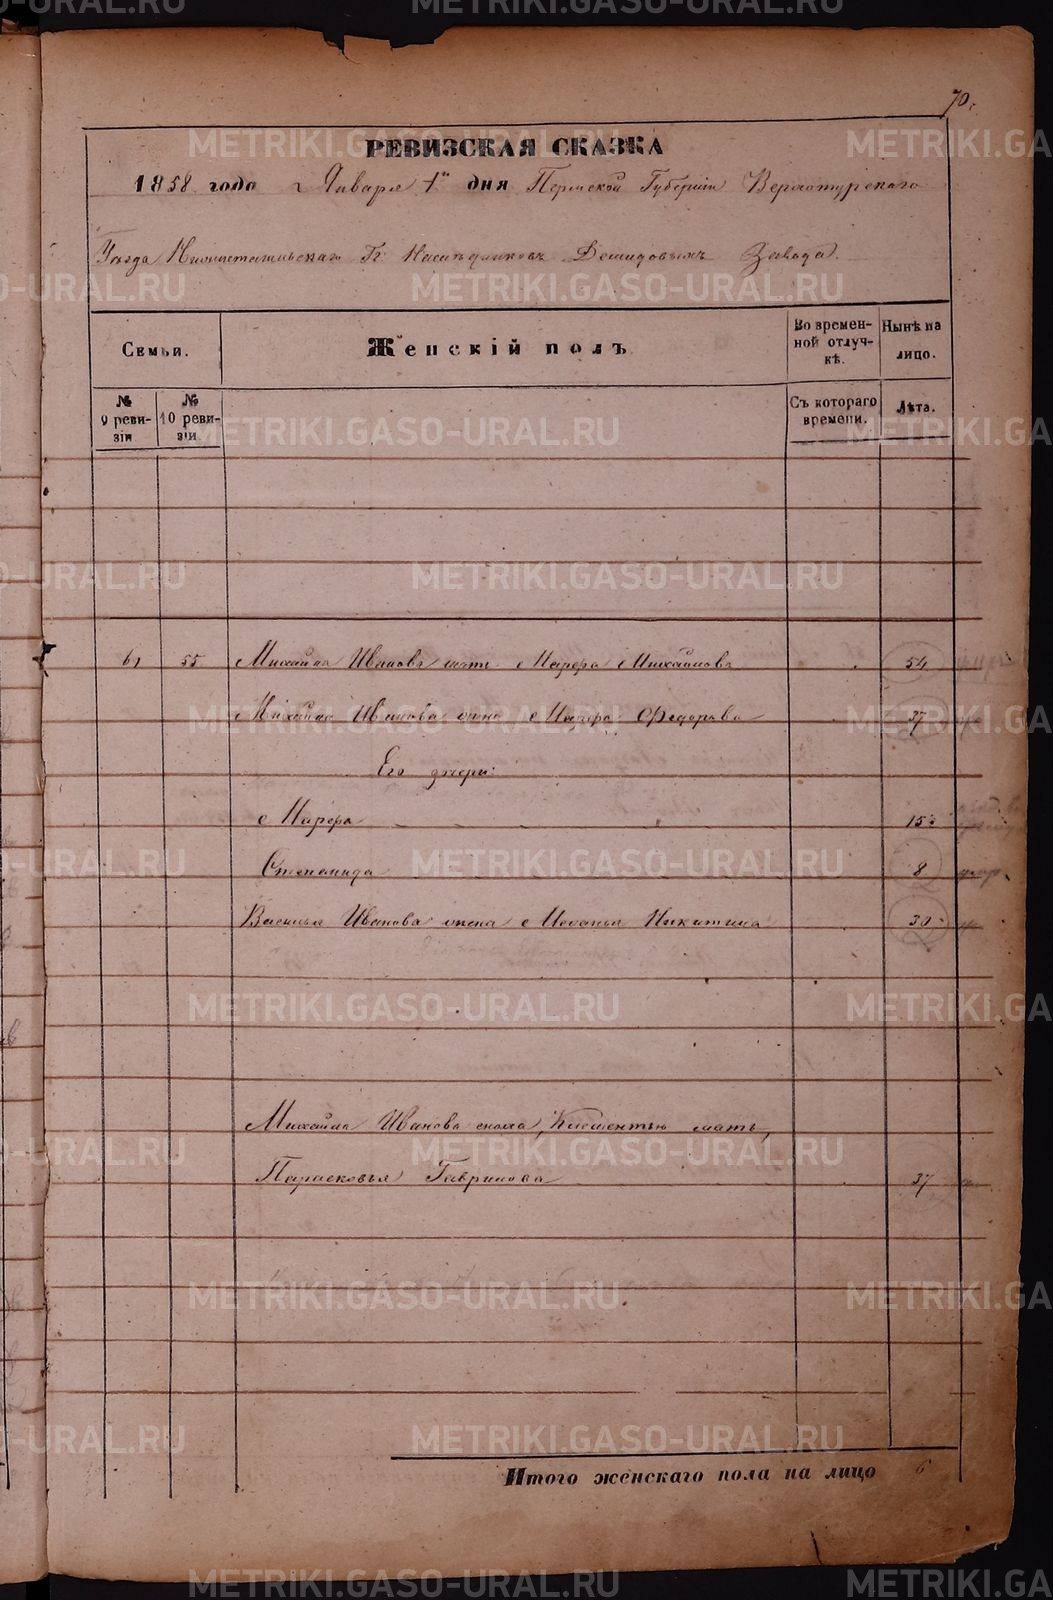 70.
РЕВИЗСКАЯ СКАЗКА
1858 года Января 1го дня Пермской Губерніи Верхотурскаго
Уѣзда Нижнетагильскаго Гг. Наслѣдниковъ Демидовыхъ Завода.
Семьи.
Женскій полъ
Во времен-
ной отлуч-
кѣ.
Нынѣ на
лицо.
№
9 реви-
зіи
№
10 реви-
зіи
Съ котораго
времени.
Лѣта.
61 55 Михайла Иванова мать Марфа Михайлова 54
Михайла Иванова жена Марфа Федорова 37
Его дочери:
Марфа 15
Степанида 8
Василья Иванова жена Никитина 30
Михайла Иванова сноха, Климентью мать,
Парасковья Гаврилова 37
Итого женскаго пола на лицо 6
METRIKI.GASO-URAL.RU